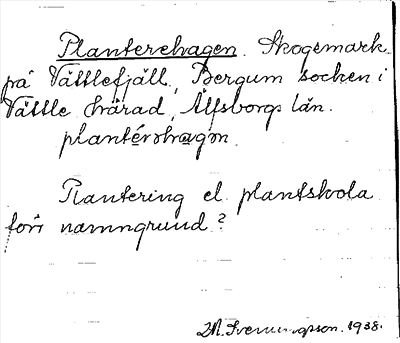 Planterehagen. Skogsmark
på Vättlefjäll, Bergum socken i
Vättle härad, Älfsborgs län.
plantérshagən
Plantering el. plantskola
förr namngrund?
M. Svenungsson. 1938.